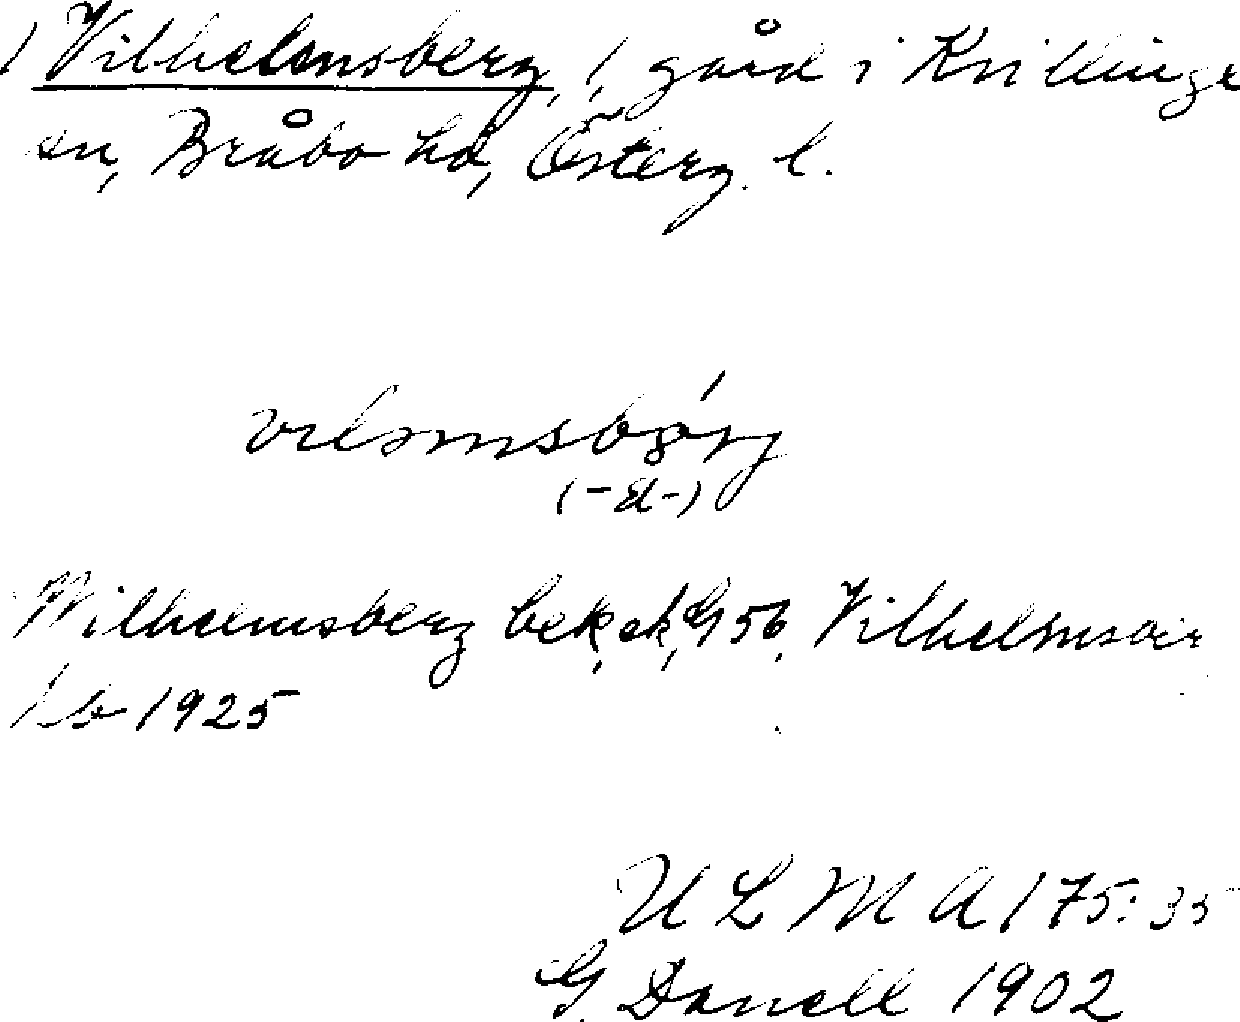 1 Vilhelmsberg, 1, gård i Kvillinge
sn, Bråbo hd, Österg. l.
vilamsbǿrj
(-ä-)
Wilhelmsberg bek, ek, G 56, Vilhelms
kb 1925
U L M A 175:35
G. Danell 1902